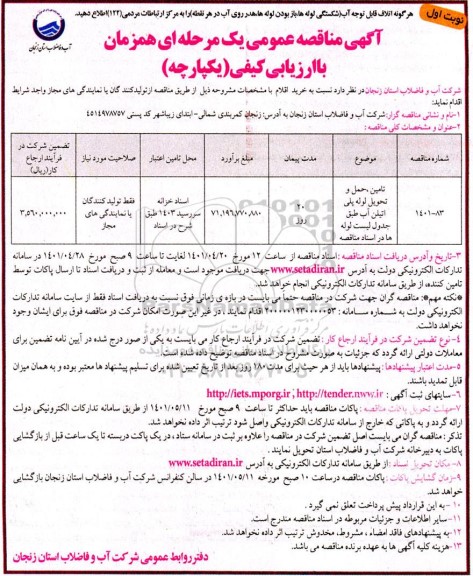 هر گونه اتلاف قابل توجه آب (شکستگی لوله ها، باز بودن لوله ها، هدر روی آب در هر نقطه) را به مرکز ارتباطات مردمی (۱۲۲) اطلاع دهید.
نوبت اول
آب و فاضلاب استان زنجان
آگهی مناقصه عمومی یک مرحله ای همزمان
با ارزیابی کیفی (یکپارچه)
شرکت آب و فاضلاب استان زنجان در نظر دارد نسبت به خرید اقلام با مشخصات مشروحه ذیل از طریق مناقصه از تولیدکنند گان یا نمایندگی های مجاز واجد شرایط
اقدام نماید:
۱-نام و نشانی مناقصه گزار: شرکت آب و فاضلاب استان زنجان به آدرس: زنجان کمربندی شمالی-ابتدای زیباشهر کد پستی ۴۵۱۴۹۷۸۷۵۷
۲-عنوان و مشخصات کلی مناقصه:
شماره مناقصه
موضوع
مدت پیمان
مبلغ برآورد
محل تامین اعتبار
صلاحیت مورد نیاز
تضمین شرکت در فرآیند ارجاع کار(ریال)
۱۴۰۱-۸۳
تامین، حمل و تحویل لوله پلی اتیلن آب طبق جدول لیست لوله ها در اسناد مناقصه
۲۰ روز
۷۱,۱۹۶,۷۷۰,۸۸۰
اسناد خزانه سررسید ۱۴۰۳ طبق شرح در اسناد
فقط تولید کنندگان یا نمایندگی های مجاز
۳,۵۶۰,۰۰۰,۰۰۰
۳-تاریخ و آدرس دریافت اسناد مناقصه: اسناد مناقصه از ساعت ۱۲ مورخ ۱۴۰۱/۰۴/۲۰ لغایت تا ساعت ۹ صبح مورخ ۱۴۰۱/۰۴/۲۸ در سامانه
تدارکات الکترونیکی دولت به آدرس www.setadiran.ir جهت دریافت موجود است و معامله از ثبت و دریافت اسناد تا ارسال پاکات توسط
تامین کننده، از طریق سامانه تدارکات الکترونیکی انجام خواهد شد.
*نکته مهم*: مناقصه گران جهت شرکت در مناقصه حتما می بایست در بازه ی زمانی فوق نسبت به دریافت اسناد فقط از سایت سامانه تدارکات
الکترونیکی دولت به شماره مناقصه اقدام نمایند. در غیر این صورت امکان شرکت در مناقصه فوق برای ایشان وجود
نخواهد داشت.
۴- نوع تضمین شرکت در فرآیند ارجاع کار: تضمین شرکت در فرآیند ارجاع کار می بایست به یکی از صور درج شده در آیین نامه تضمین برای
معاملات دولتی ارائه گردد که جزئیات به صورت مشروح در اسناد مناقصه توضیح داده شده است.
۵-مدت اعتبار پیشنهادها: پیشنهادها باید از هر حیث برای مدت ۱۸۰ روز بعد از تاریخ تعیین شده برای تسلیم پیشنهاد ها معتبر بوده و به همان میزان
قابل تمدید باشند.
۶-سایتهای ثبت آگهی: http://iets.mporg.ir , http://tender.nww.ir
۷-مهلت تحویل پاکات مناقصه: پاکات مناقصه باید حداکثر تا ساعت ۹ صبح مورخ ۱۴۰۱/۰۵/۱۱ از طریق سامانه تدارکات الکترونیکی دولت
ارائه گردد و به پاکاتی که خارج از سامانه تدارکات الکترونیکی واصل شود ترتیب اثر داده نخواهد شد.
تذکر: مناقصه گران می بایست اصل تضمین شرکت در مناقصه را علاوه بر ثبت در سامانه ستاد، در یک پاکت دربسته تا یک ساعت قبل از بازگشایی
پاکات به دبیرخانه شرکت آب و فاضلاب استان تحویل نمایند.
۸- مکان تحویل اسناد: از طریق سامانه تدارکات الکترونیکی به آدرس www.setadiran.ir
۹-زمان گشایش پاکات: پاکات مناقصه در ساعت ۱۰ صبح مورخه ۱۴۰۱/۰۵/۱۱ در سالن کنفرانس شرکت آب و فاضلاب استان زنجان بازگشایی
خواهد شد.
۱۰- به این قرارداد پیش پرداخت تعلق نمی گیرد.
۱۱-سایر اطلاعات و جزئیات مربوطه در اسناد مناقصه مندرج است.
۱۲-به پیشنهادهای فاقد امضاء، مشروط، مخدوش ترتیب اثر داده نخواهد شد.
۱۳-هزینه کلیه آگهی ها به عهده برنده مناقصه می باشد.
دفتر روابط عمومی شرکت آب و فاضلاب استان زنجان